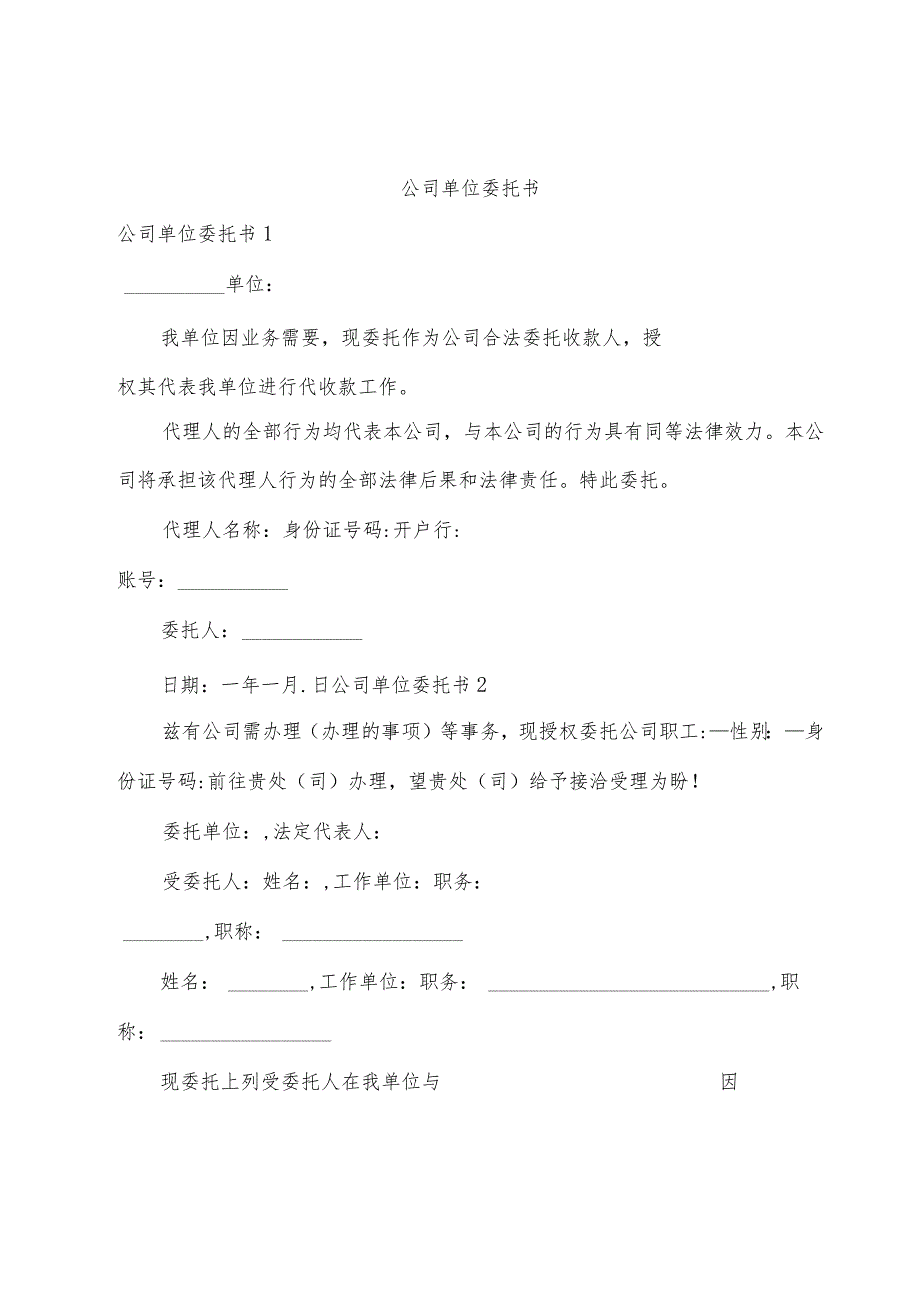 公司单位委托书
公司单位委托书1
__________单位：
我单位因业务需要，现委托作为公司合法委托收款人，授
权其代表我单位进行代收款工作。
代理人的全部行为均代表本公司，与本公司的行为具有同等法律效力。本公
司将承担该代理人行为的全部法律后果和法律责任。特此委托。
代理人名称：身份证号码:开户行:
账号：___________
委托人：____________
日期：一年一月.日公司单位委托书2
兹有公司需办理（办理的事项）等事务，现授权委托公司职工:—性别：—身
份证号码:前往贵处（司）办理，望贵处（司）给予接洽受理为盼！
委托单位：,法定代表人：
受委托人：姓名：,工作单位：职务：
________,职称：__________________
姓名：________,工作单位：职务：____________________________,职
称：_________________
现委托上列受委托人在我单位与 因